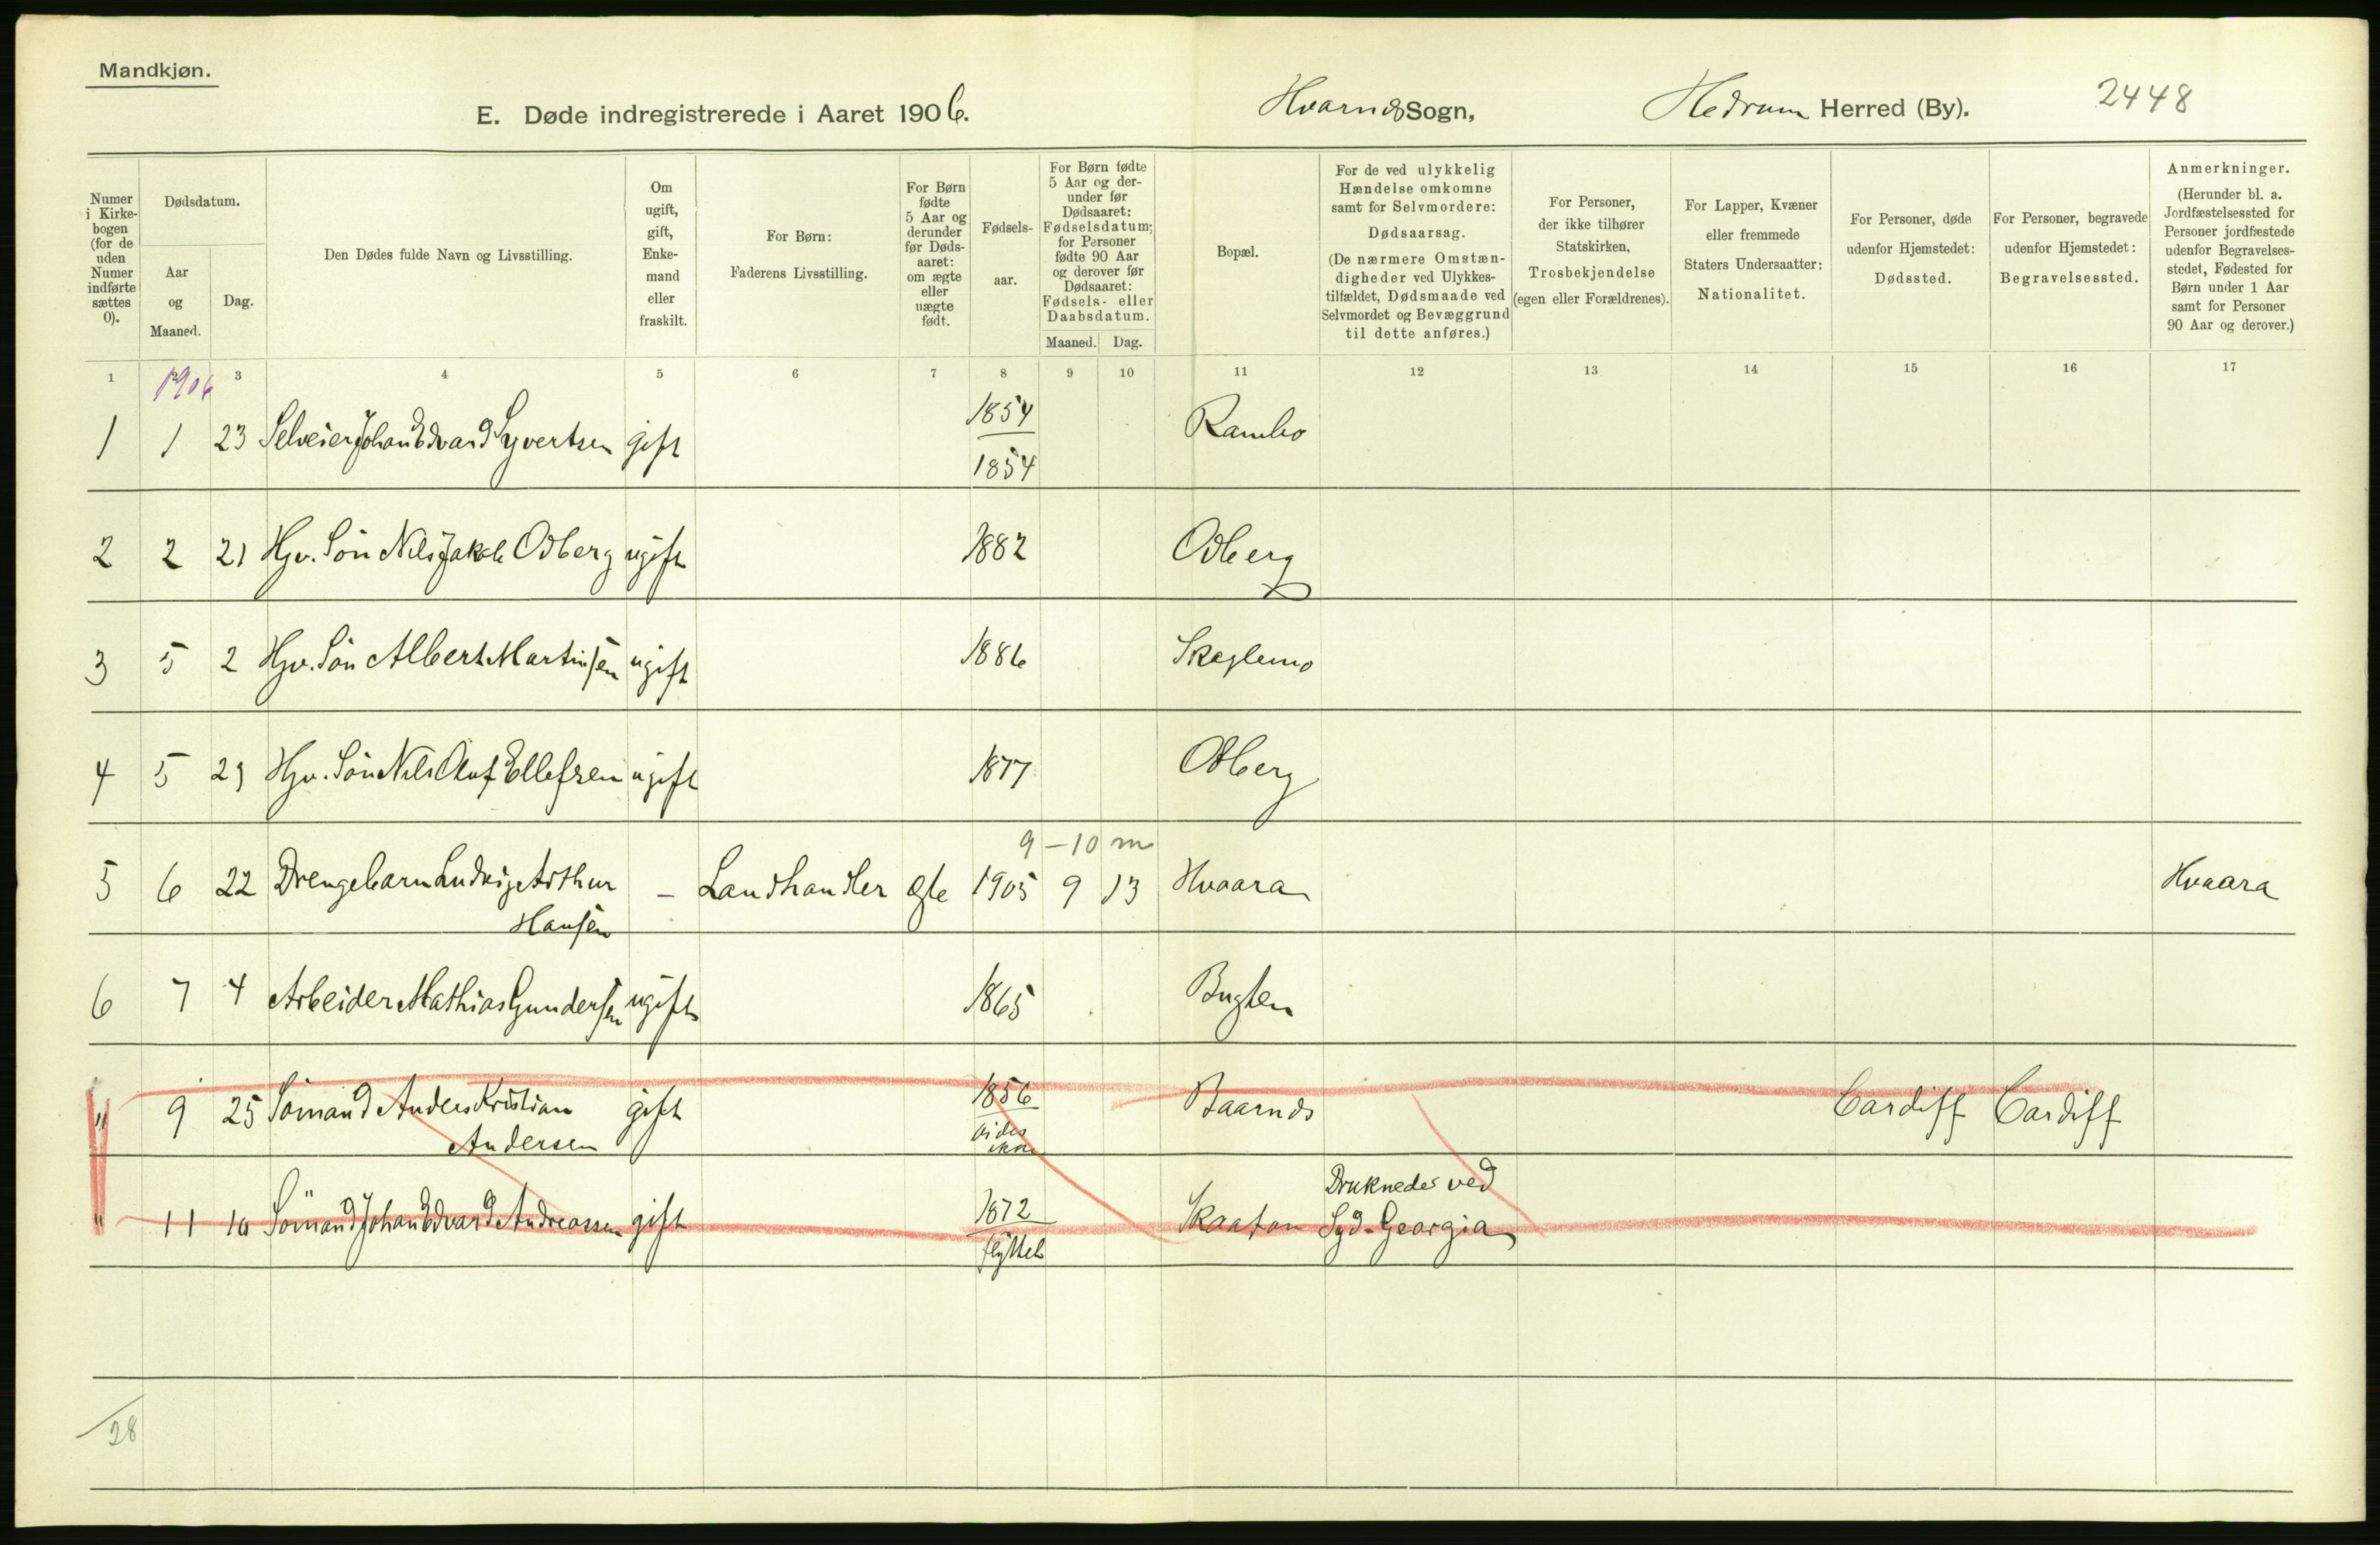 Mandkjøn.
E. Døde indregistrerede i Aaret 1906. Hvarnds Sogn, Hedrum Herred (By). 2448
Numer i Kirkebogen (for de uden Numer indførte sættes 0).
Dødsdatum.
Aar og Maaned.
Dag.
Den Dødes fulde Navn og Livsstilling.
Om ugift, gift, Enkemand eller fraskilt.
For Børn: Faderens Livsstilling.
For Børn fødte 5 Aar og derunder før Dødsaaret: om ægte eller uægte født.
Fødselsaar.
For Børn fødte 5 Aar og derunder før Dødsaaret: Fødselsdatum; for Personer fødte 90 Aar og derover før Dødsaaret: Fødsels- eller Daabsdatum.
Maaned. Dag.
Bopæl.
For de ved ulykkelig Hændelse omkomne samt for Selvmordere: Dødsaarsag. (De nærmere Omstændigheder ved Ulykkestilfældet, Dødsmaade ved Selvmordet og Bevæggrund til dette anføres.)
For Personer, der ikke tilhører Statskirken, Trosbekjendelse (egen eller Forældrenes).
For Lapper, Kvæner eller fremmede Staters Undersaatter: Nationalitet.
For Personer, døde udenfor Hjemstedet: Dødssted.
For Personer, begravede udenfor Hjemstedet: Begravelsessted.
Anmerkninger. (Herunder bl. a. Jordfæstelsessted for Personer jordfæstede udenfor Begravelsesstedet, Fødested for Børn under 1 Aar samt for Personer 90 Aar og derover.)
1 2 3 4 5 6 7 8 9 10 11 12 13 14 15 16 17
1906
1 1 23 Selveier Johan Edvard Syvertsen gift 1854 Rambo
1854
2 2 21 Hjv. Søn Nils Jakob Odberg ugift 1882 Odberg
3 5 2 Hjv. Søn Albert Martinsen ugift 1886
4 5 29 Hjv. Søn Nils Oluf Ellefsen ugift 1877 Odberg
9 – 10 m
5 6 22 Drengebarn Ludvig Arthur – Landhandler ægte 1905 9 13 Hvaara Hvaara
Hansen
6 7 4 Arbeider Mathias Gundersen ugift 1865 Bugten
" 9 25 Sømand Anders Kristian gift 1856 Baarnds Cardiff Cardiff
Andersen vides ikke
Druknedes ved
" 11 10 Sømand Johan Edvard Andreassen gift 1872 Syd-Georgia
flyttet
28